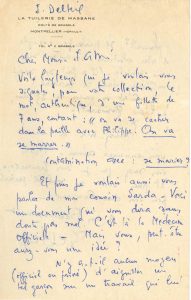 J. Delteil
LA TUILERIE DE MASSANE
ROUTE DE GRABELS
MONTPELLIER (HERAULT)
TEL. N° 2 GRABELS
Cher Monsieur
Voilà longtemps que je voulais vous
signaler, pour votre collection, le
mot, authentique, d'une fillette de
7 ans, contant : « on va se cacher
dans la paille avec Philippe. On va
se marrer »
Contamination avec : se marier ?
Et puis je voulais aussi vous
parler de mon cousin Sarda. Voici
un document qui vous dira
C'est le Médecin
Officiel. Mais vous, peut-être
avez-vous une idée ?
N'y a-t-il aucun moyen
(officiel ou privé) d'aiguiller un
tel garçon sur un travail qui lui